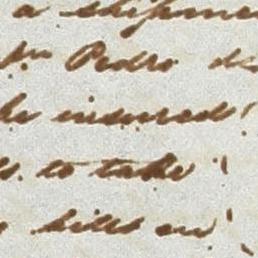 a shipmen
Pedro de
be insured
to take
bills on